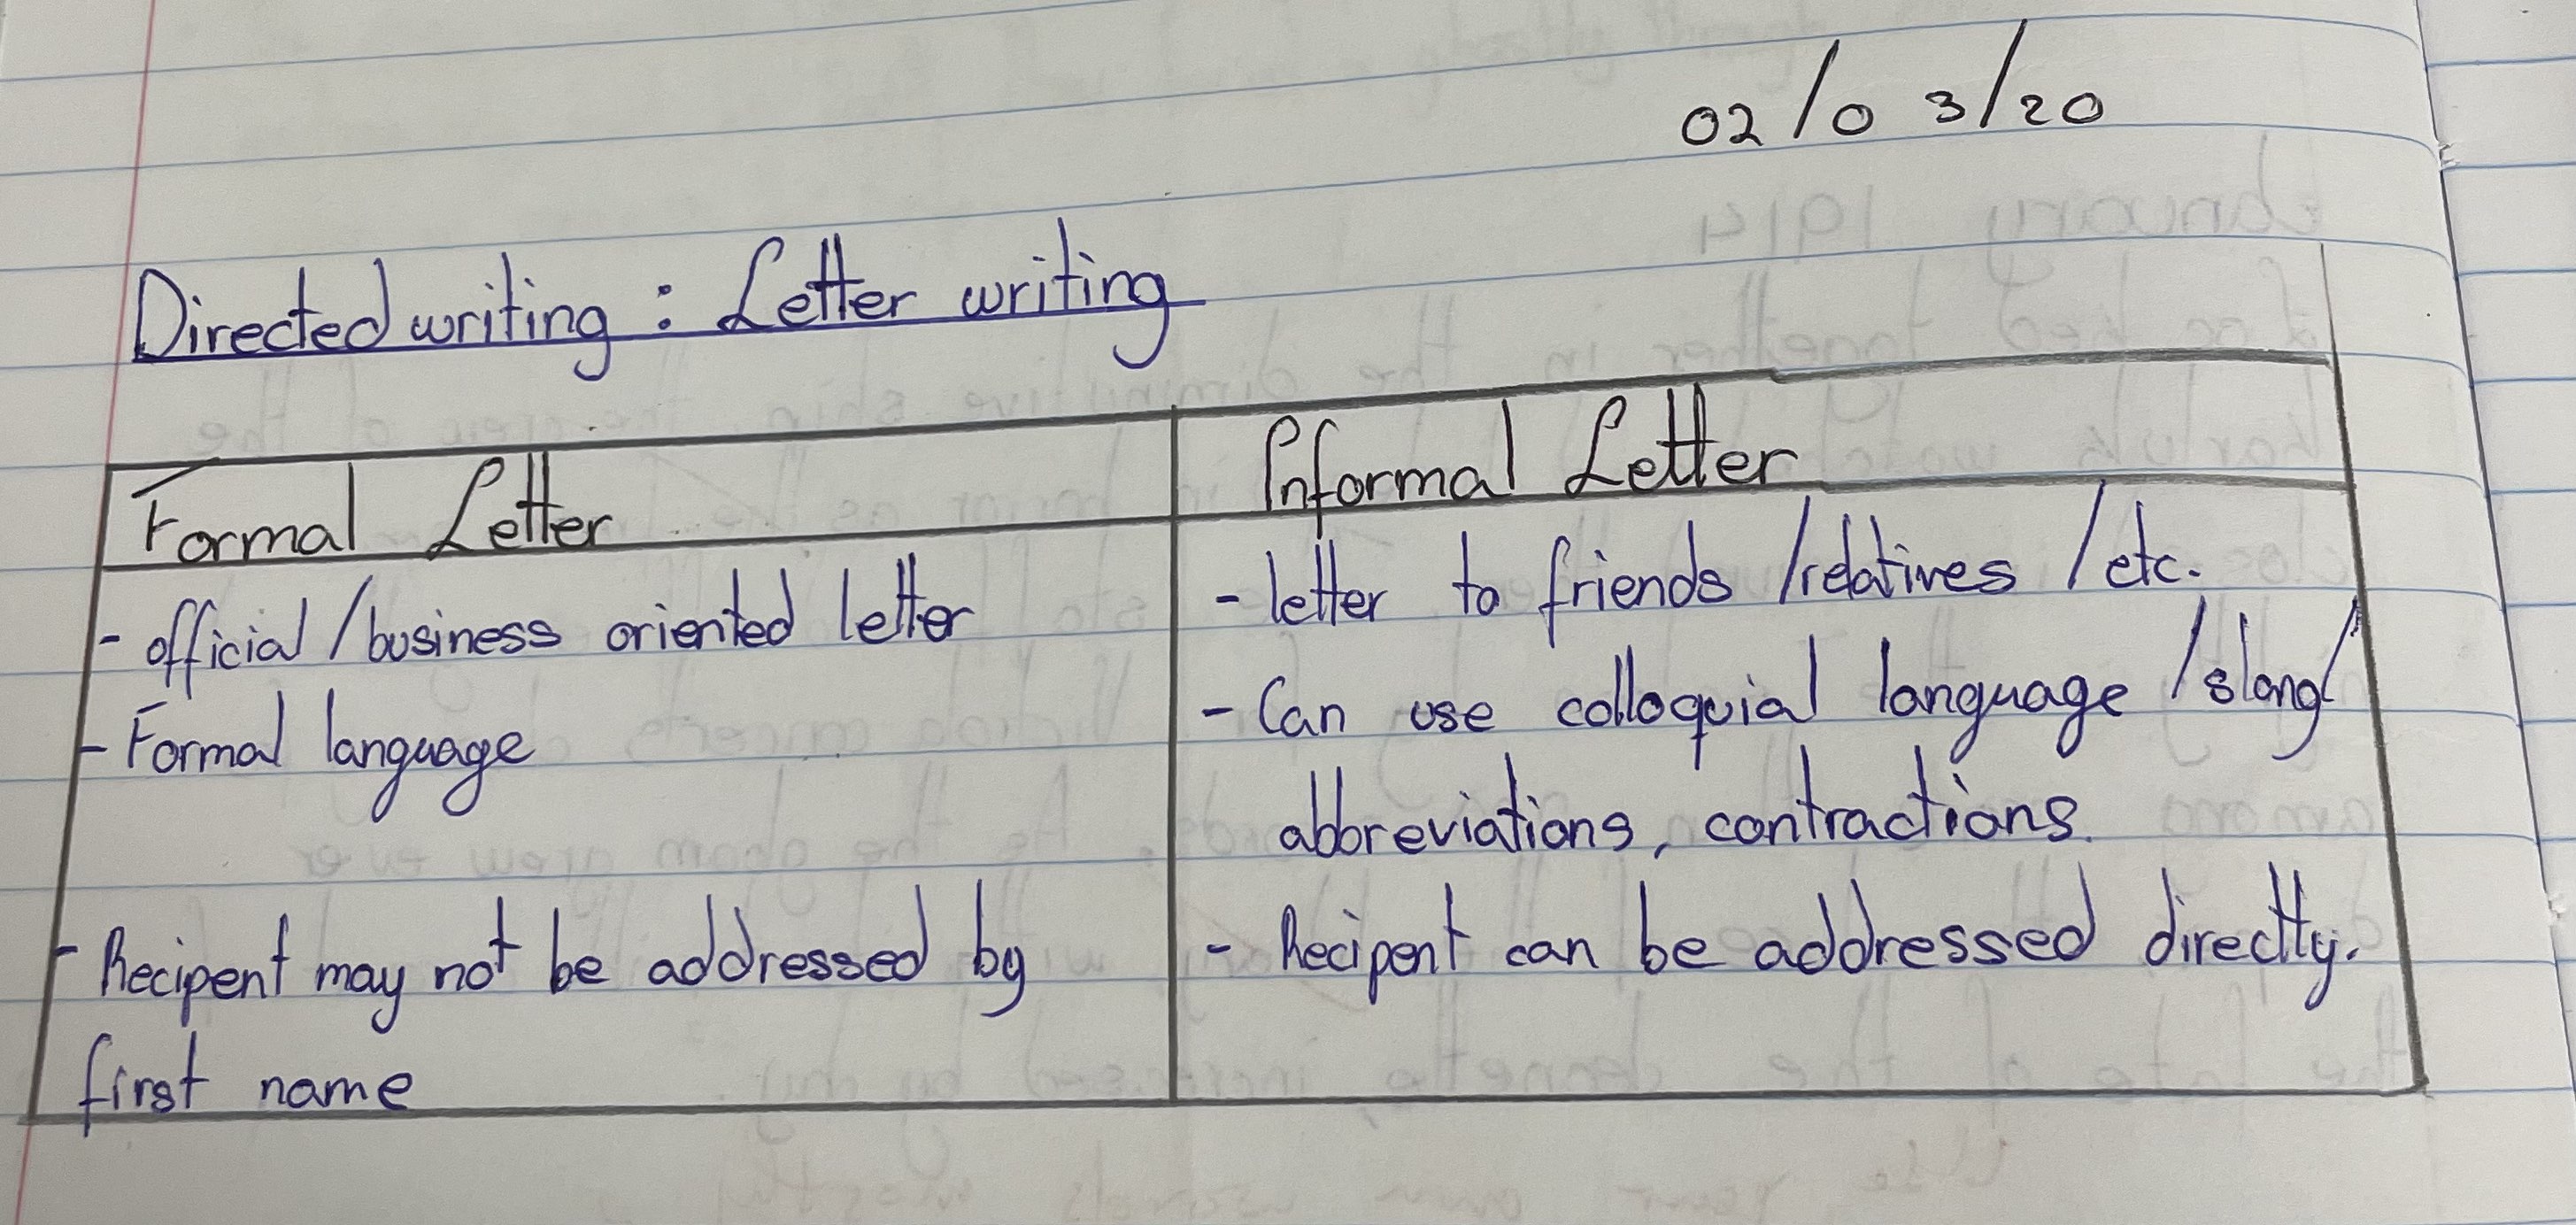 02/03/20
Directed writing : Letter writing
Formal Letter
- official /business oriented letter
- Formal language
- Recipent may not be addressed by
first name
Informal Letter
- letter to friends /relatives /etc.
- Can use colloquial language /slang/
abbreviations, contractions.
- Recipent can be addressed directly.